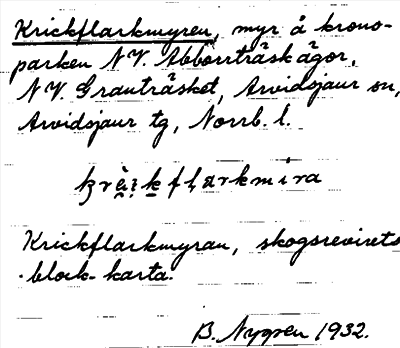 Krickflarkmyren, myr å krono-
parken NV. Abborrträskågor,
NV. Grauträsket, Arvidsjaur sn,
Arvidsjaur tg, Norrb. l.
Krickflarkmyran, skogsrevirets
block-karta.
B. Nygren 1932.